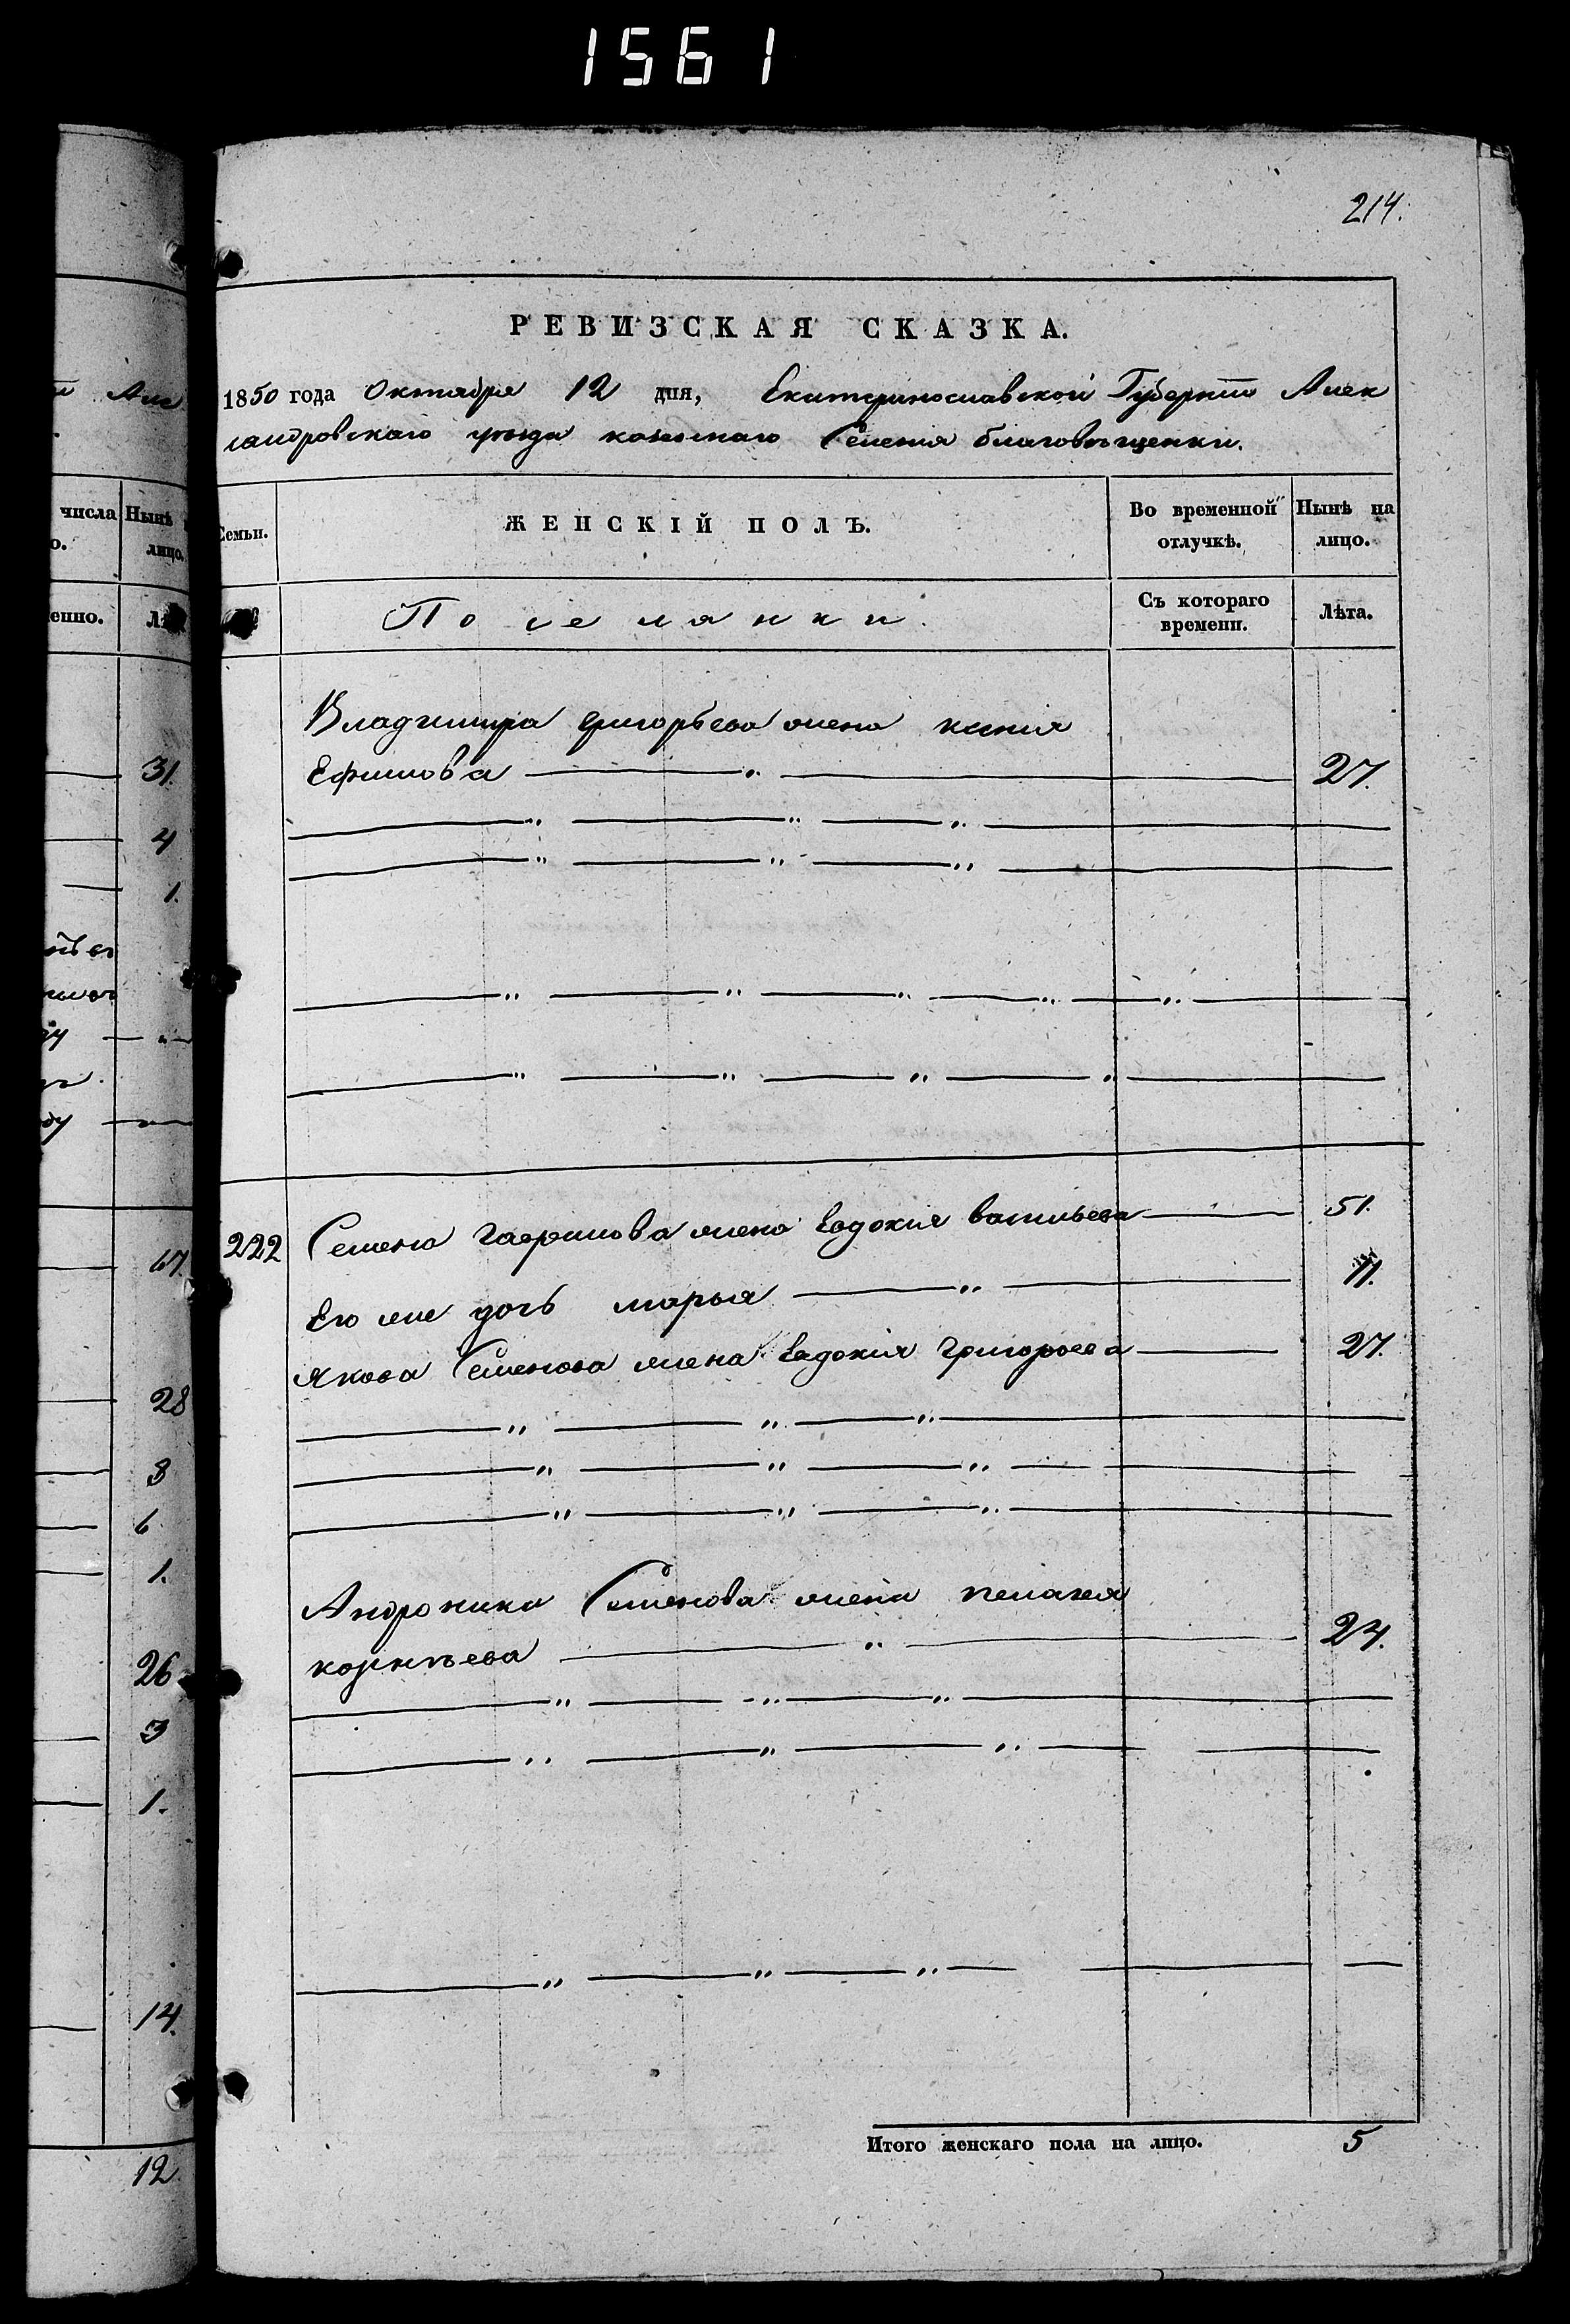 1561
214.
РЕВИЗСКАЯ СКАЗКА.
1850 года Октября 12 дня, Екатеринославской Губерніи Алек
сандровскаго уѣзда казеннаго Селенія благовѣщенки.
числа Нынѣ
лицо.
Семьи.
ЖЕНСКІЙ ПОЛЪ.
Во временной отлучкѣ.
Нынѣ на лицо.
Поселянки.
Съ котораго времени.
Лѣта.
Владимира григорьева жена
Ефимова 27.
222 Семена гаврилова жена Евдокия васильева 51.
Его же дочь марья 11.
Якова Семенова жена Евдокия григорьева 27.
Андроника Семенова жена пелагея
корнѣева 24.
Итого женскаго пола на лицо. 5
31.
4
1.
67.
28
8
6
1.
26
3
1.
14.
12